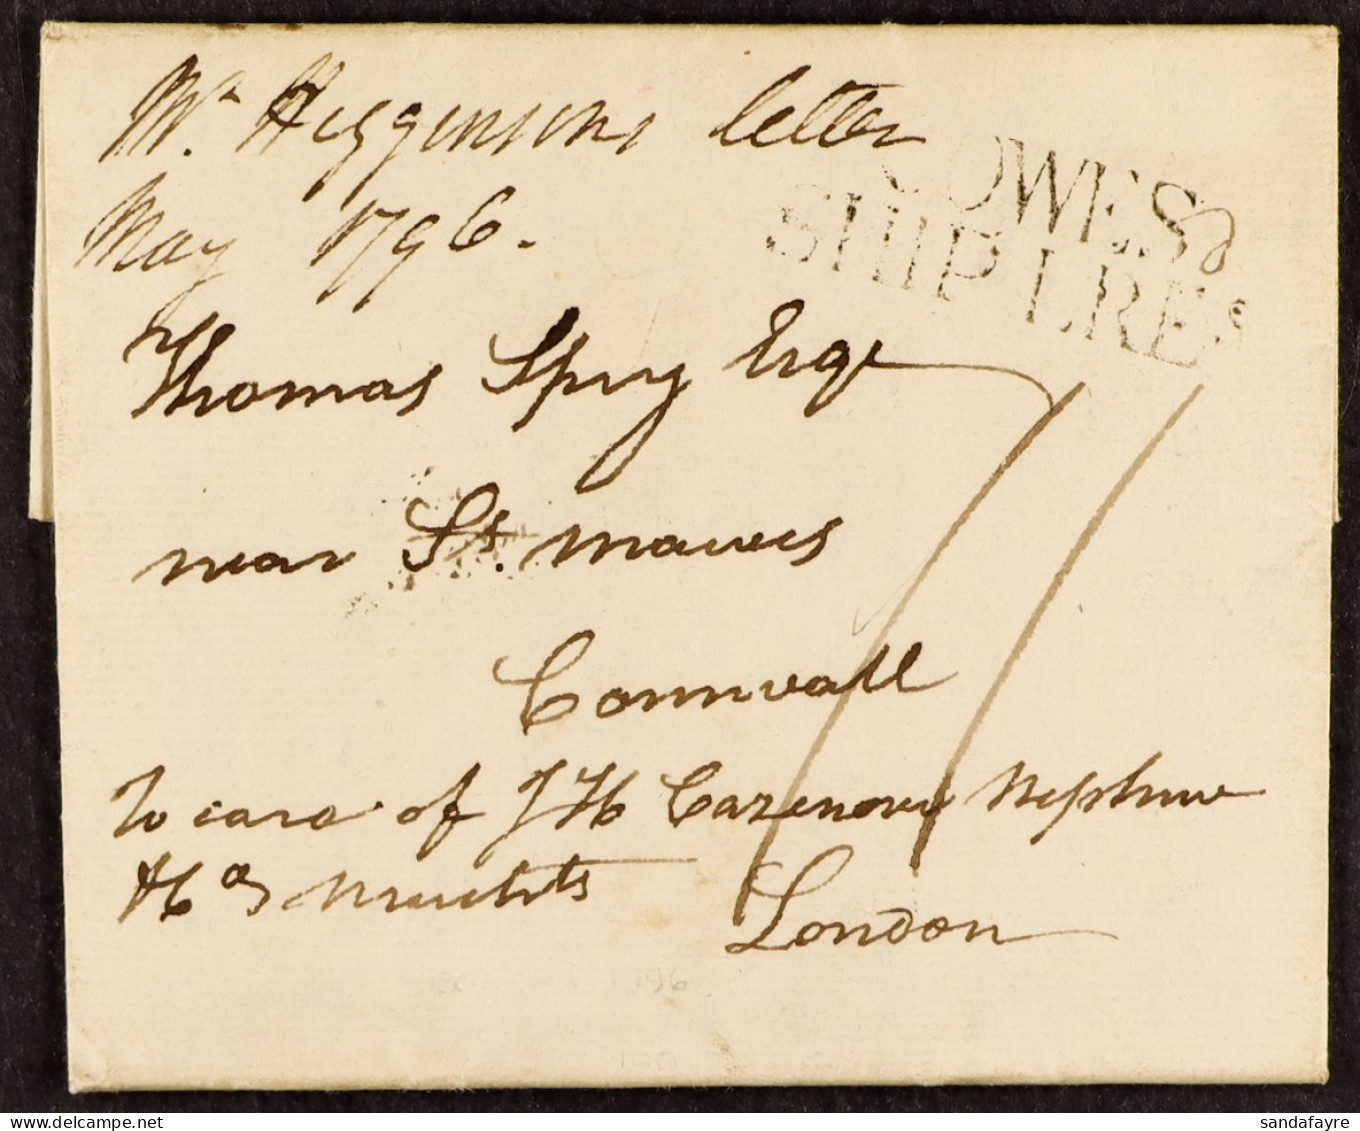 Mr. Higginsons letter
May 1796.
COWES
SHIP LRE
Thomas Spry Esqr
near St. Mawes
Cornwall
To care of J H Cazenove Nephew
& Co
London
sandafayre